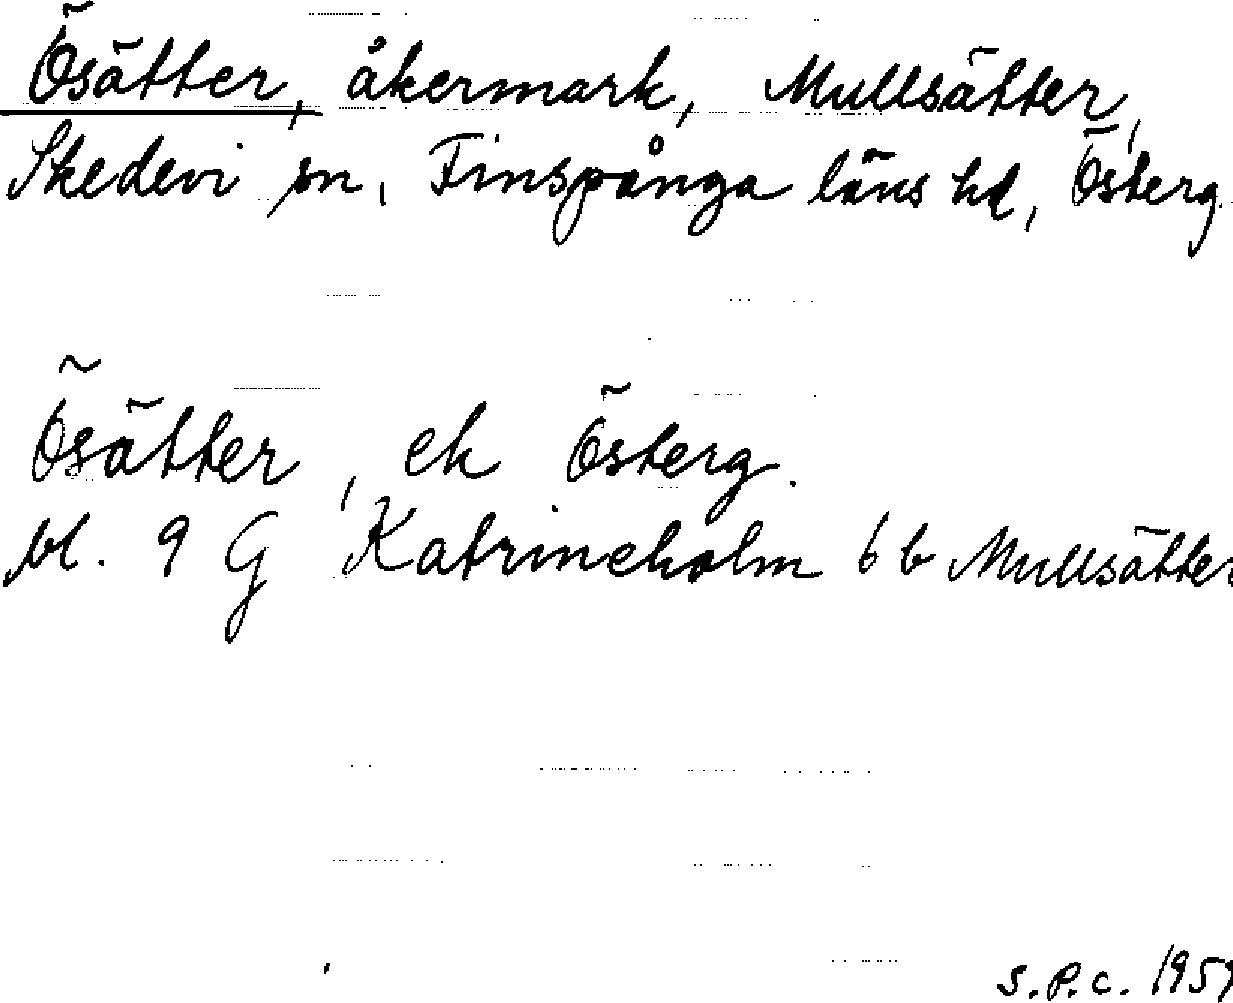 Ösätter, åkermark, Mullsätter,
Skedevi sn, Finspånga läns hd, Österg.
Ösätter, ek Österg.
bl. 9 G Katrineholm 6 b Mullsätter
S.P.C. 1959